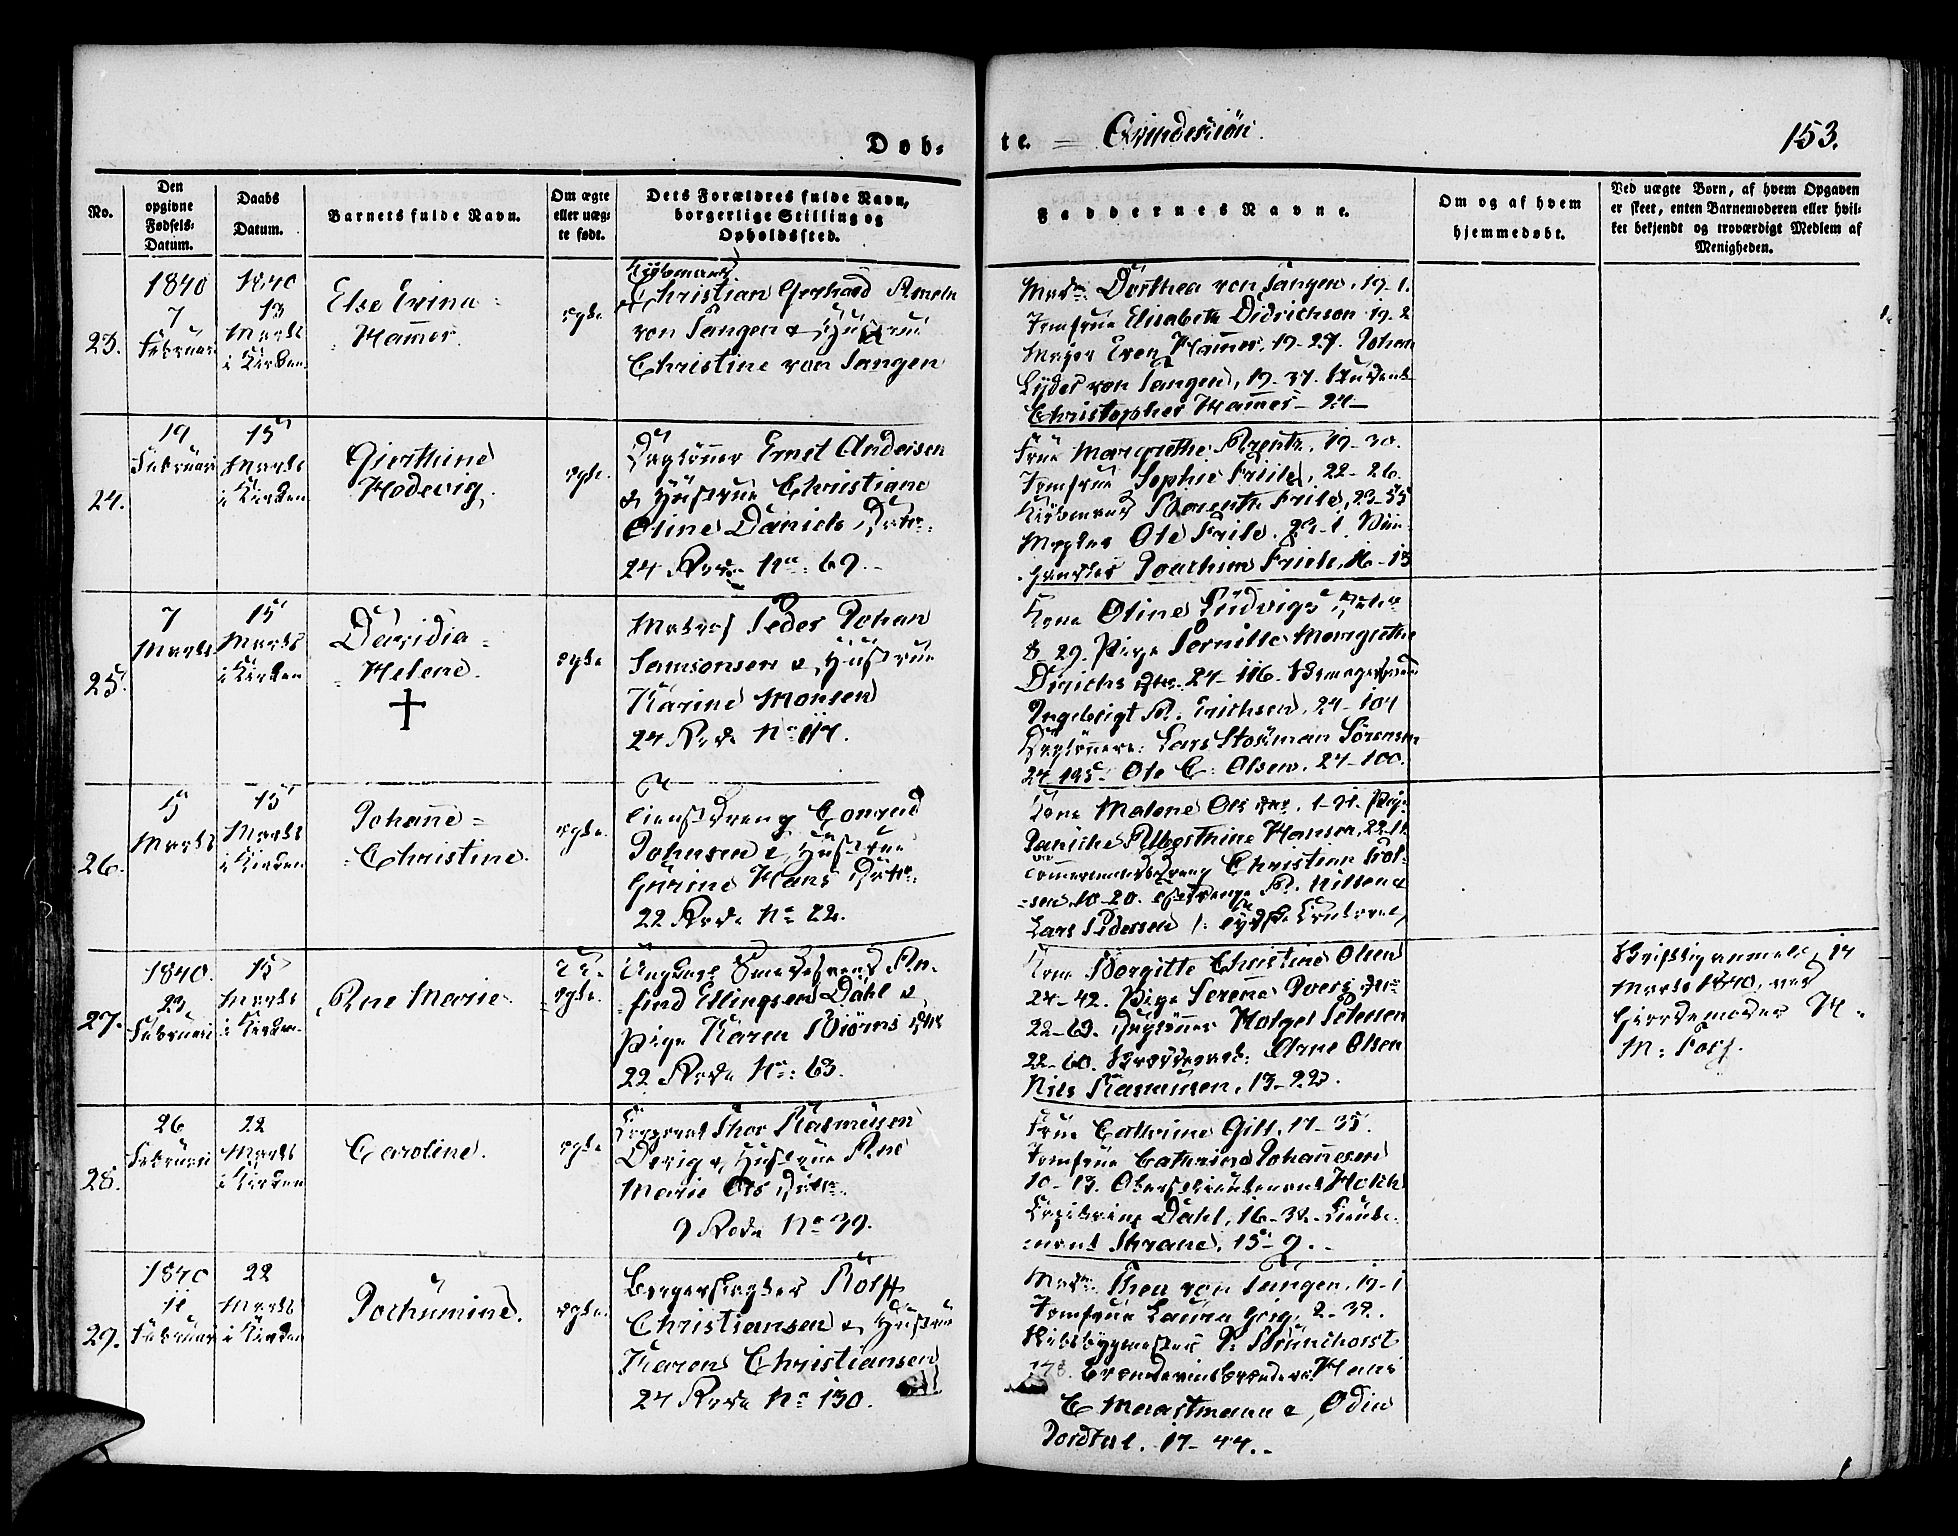 Døb-
te. = Qvindekiøn.
153.
No.
Den opgivne Fødsels-Datum.
Daabs Datum.
Barnets fulde Navn.
Om ægte eller uæg-te født.
Dets Forældres fulde Navn, borgerlige Stilling og Opholdssted.
Faddernes Navne.
Om og af hvem hjemmedøbt.
Ved uægte Børn, af hvem Opgaven er skeet, enten Barnemoderen eller hvil-ket bekjendt og troværdigt Medlem af Menigheden.
23.
1840
7
Februari
1840
13
Marts
i Kirken
Else Evina
Hamer.
ægte
Kjøbmand
Christian Gerhard Ameln
von Tangen & Hustrue
Christine von Tangen
Mad: Dorthea von Tangen, 19-1.
Jomfrue Elisabeth Didrichson 19-2
Major Even Hamer, 19-27. Johan
Lyder von Tangen, 19-37. Student
Christopher Hamer - 24-
24.
19
Februari
15
Marts
i Kirken
Gierthine
Hedevig.
ægte.
Dagløner Ernst Andersen
& Hustrue Christiane
Oline Daniels Datr:
24 Rode No: 69.
Frue Margrethe Arentz, 19-30.
Jomfrue Sophie Friele, 22-26.
Kjøbmand Berenth Friele, 23-55
Mægler Ole Friele, 23-1.
Joachim Friele, 16-13
25.
7
Marts
15
Marts
i Kirken
Davidia
Helene.
ægte
Matros Peder Johan
Samsonsen & Hustrue
Karine Monsen
24 Rode No 114.
Kone Oline Ludvigs Datr
8-29. Pige Pernille Margrethe
Dirichs Dtr. 24-116.
Ingebrigt A. Erichsen, 24-104
Dagløner: Lars Stockman Sørensen
24-125. Ole C: Olsen, 24-100.
26.
15
Marts
15
Marts
i Kirken
Johanne
Christine.
ægte.
Tienstdreng Conrad
Johnsen & Hustrue
Gurine Hans Datr:
22 Rode No 22.
Kone Malene Ols Dtr, 1-31. Pige
Janiche Alberthine Hansen, 22-11
Tømmermandsdreng Christian Tol-
sen, 10-20. A. Nilsen &
Lars Pedersen
27.
1840.
23
Februari
15
Marts
i Kirken
Ane Marie.
Uægte.
Ungkarl Smedesvend An-
find Ellingsen Dahl &
Pige Karen Biørns Dtr
22 Rode No: 63.
Kone Borgitte Christine Olsen
24-42. Pige Serene Ivers Dtr
22-63. Dagløner Holger Petersen
22-60. Arne Olsen
Nils Rasmusen, 13-22.
Skriftlig anmeldt, 14
Marts 1840, ved
Giordemoder H.
M:
28.
26
Februari
22
Marts
i Kirken
Caroline.
ægte
Corporal Thor Rasmusen
Devig & Hustrue Ane
Marie Ols Datr.
9 Rode No 39.
Frue Cathrine Gill, 17-35.
Jomfrue Cathrine Johannesen
10-13. Oberstlieutenant Holck
Capitaine Dahl, 16-38. Lieute-
nant Thrane, 15-9.
29.
1840
11
Februari
22
Marts
i Kirken
Jochumine.
ægte.
Borgervægter Rolff
Christiansen & Hustrue
Karen Christiansen
24 Rode No 130.
Mad: Thea von Tangen, 19-1
Jomfrue Laura Grieg, 2-38.
Skibsbygmester P. Brunchorst
178. Brændeviinsbrænder Hans
C Maartmann & Odin
17-44.